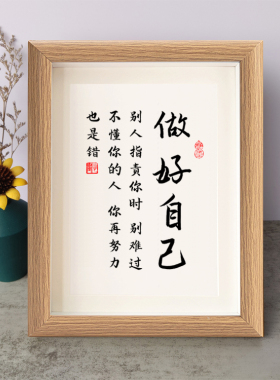 做好自己
别人指責你时 别难过
不懂你的人 你再努力
也是错